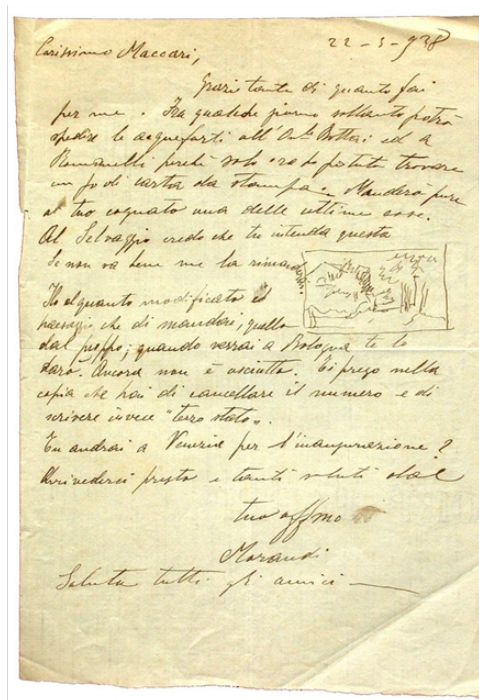 22-5-938
Carissimo Maccari,
Grazie tante di quanto fai
per me. Fra qualche giorno soltanto potrò
spedire le acqueforti all'On. Bottai ed a
Romanelli perché solo ora ho potuto trovare
un po di carta da stampa. Manderò pure
al tuo cognato una delle ultime cose.
Al Selvaggio credo che tu intenda questa
Se non va bene me la rimandi.
Ho alquanto modificato il
paesaggio che ti mandai, quello
dal pioppo; quando verrai a Bologna te lo
darò. Ancora non è asciutto. Ti prego nella
copia che hai di cancellare il numero e di
scrivere invece "terzo stato".
Tu andrai a Venezia per l'inaugurazione?
Arrivederci presto e tanti saluti dal
tuo affmo
Morandi
Saluta tutti gli amici